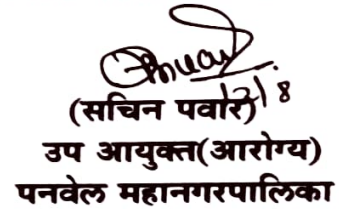 (सचिन पवार)
उप आयुक्त(आरोग्य)
पनवेल महानगरपालिका